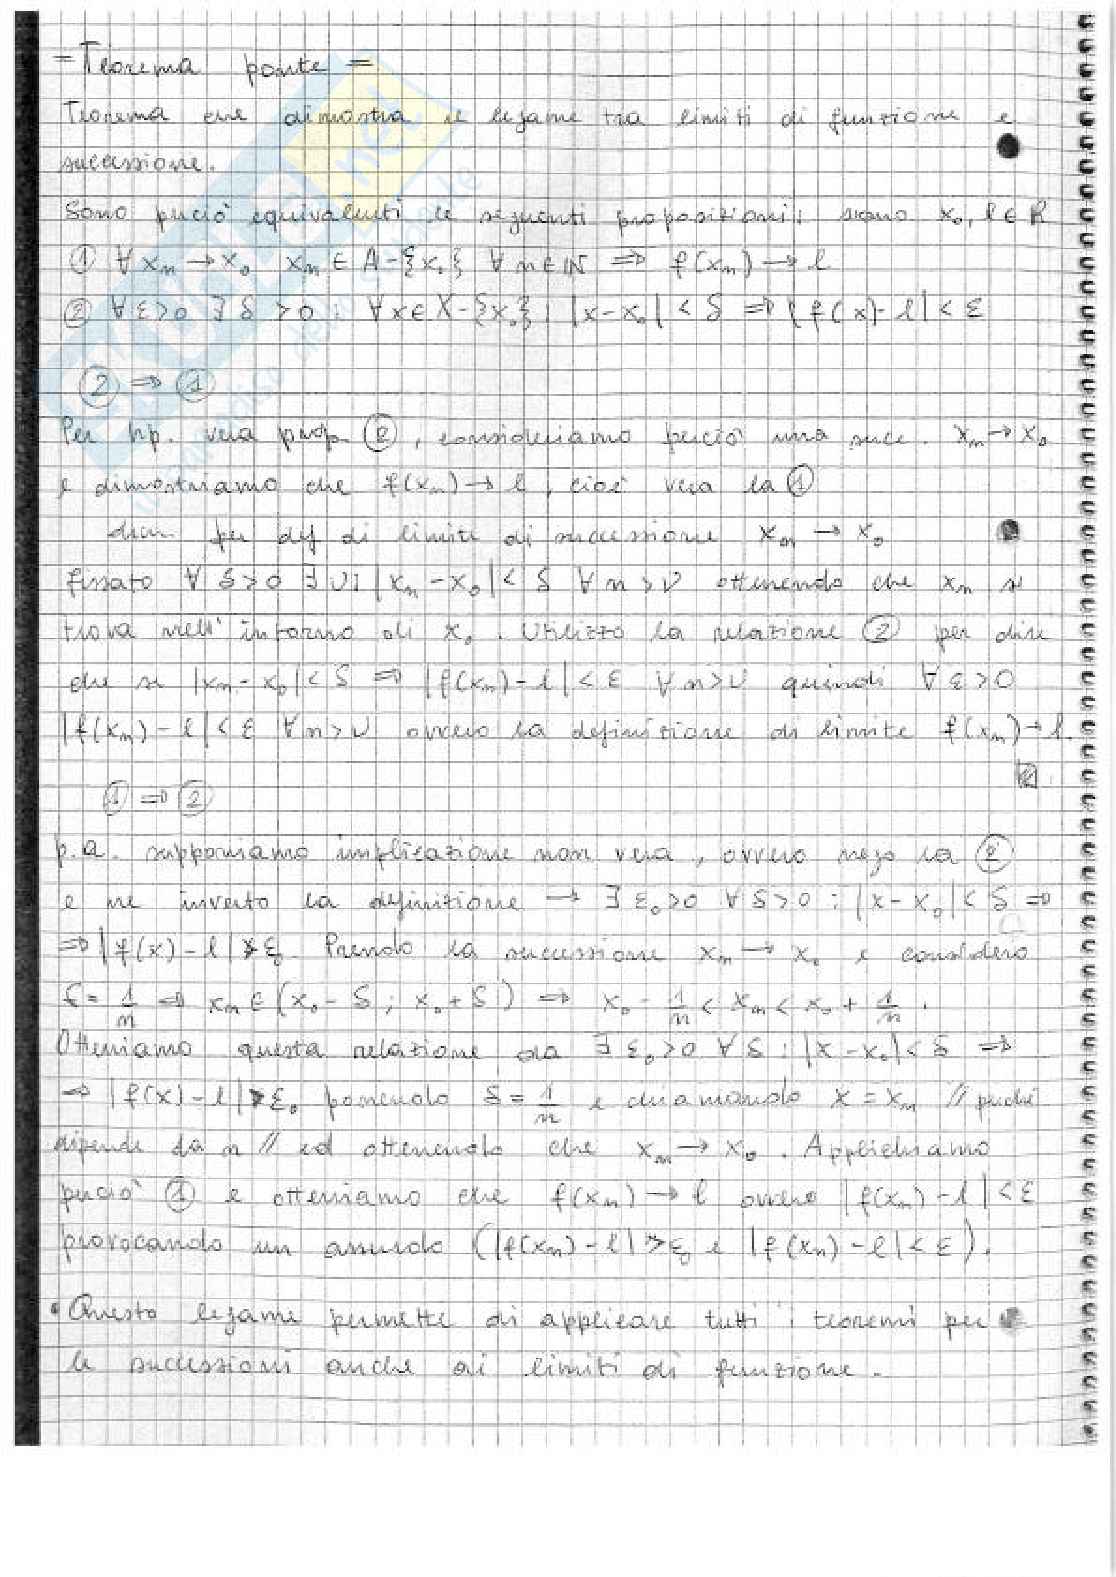 = Teorema ponte =
Teorema che dimostra il legame tra limiti di funzione e
successione.
Sono perciò equivalenti le seguenti proposizioni: siano x₀, l ∈ R
① ∀ xₙ → x₀ xₙ ∈ A - {x₀} ∀ n ∈ ℕ ⇒ f(xₙ) → l
② ∀ ε > 0 ∃ δ > 0 : ∀ x ∈ X - {x₀} : |x - x₀| < δ ⇒ |f(x) - l| < ε
② ⇒ ①
Per hp. vera prop. ②, consideriamo perciò una succ. xₙ → x₀
e dimostriamo che f(xₙ) → l, cioè vera la ①
dim. per def di limiti di successione xₙ → x₀
fissato ∀ δ > 0 ∃ ν : |xₙ - x₀| < δ ∀ n > ν ottenendo che xₙ si
trova nell'intorno di x₀. Utilizzo la relazione ② per dire
che se |xₙ - x₀| < δ ⇒ |f(xₙ) - l| < ε ∀ n > ν quindi ∀ ε > 0
|f(xₙ) - l| < ε ∀ n > ν ovvero la definizione di limite f(xₙ) → l.
① ⇒ ②
p.a. supponiamo implicazione non vera, ovvero nego la ②
e ne inverto la definizione → ∃ ε₀ > 0 ∀ δ > 0 : |x - x₀| < δ ⇒
⇒ |f(x) - l| ≥ ε₀ Prendo la successione xₙ → x₀ e considero
δ = 1/n ⇒ xₙ ∈ (x₀ - δ ; x₀ + δ) ⇒ x₀ - 1/n < xₙ < x₀ + 1/n .
Otteniamo questa relazione da ∃ ε₀ > 0 ∀ δ : |x - x₀| < δ ⇒
⇒ |f(x) - l| ≥ ε₀ ponendo δ = 1/n e chiamando x = xₙ // perché
dipende da n // ed ottenendo che xₙ → x₀ . Applichiamo
perciò ① e otteniamo che f(xₙ) → l ovvero |f(xₙ) - l| < ε
provocando un assurdo (|f(xₙ) - l| ≥ ε₀ e |f(xₙ) - l| < ε).
• Questo legame permette di applicare tutti i teoremi per
le successioni anche ai limiti di funzione.